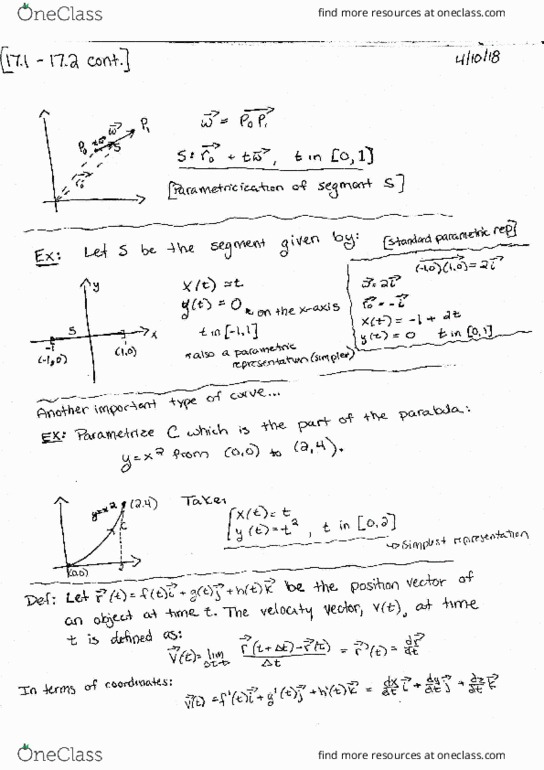 OneClass find more resources at oneclass.com
[17.1 - 17.2 cont.] 4/10/18
P₀ tw⃗ w⃗ S P₁
r₀⃗
w⃗ = P₀P₁⃗
S: r₀⃗ + tw⃗, t in [0,1]
[Parametricication of segmant S]
Ex: Let S be the segment given by:
y
S
x
-1 1
(-1,0) (1,0)
x(t) = t
y(t) = 0 on the x-axis
t in [-1,1]
*also a parametric
representation (simpler)
[standard parametric rep]
(-1,0)(1,0)⃗ = 2i⃗
= 2i⃗
r₀⃗ = -i⃗
x(t) = -1 + 2t
y(t) = 0 t in [0,1]
Another important type of curve...
EX: Parametrize C which is the part of the parabula:
y=x² from (0,0) to (2,4).
y=x² (2,4)
C
(0,0)
Take
{x(t) = t
{y(t) = t², t in [0,2]
→ Simplest representation
Def: Let r⃗(t) = f(t)i⃗ + g(t)j⃗ + h(t)k⃗ be the position vector of
an object at time t. The velocity vector, v(t), at time
t is defined as:
v⃗(t) = lim r⃗(t+Δt) - r⃗(t) / Δt = r⃗'(t) = dr⃗/dt
In terms of coordinates:
v⃗(t) = f'(t)i⃗ + g'(t)j⃗ + h'(t)k⃗ = dx/dt i⃗ + dy/dt j⃗ + dz/dt k⃗
OneClass find more resources at oneclass.com